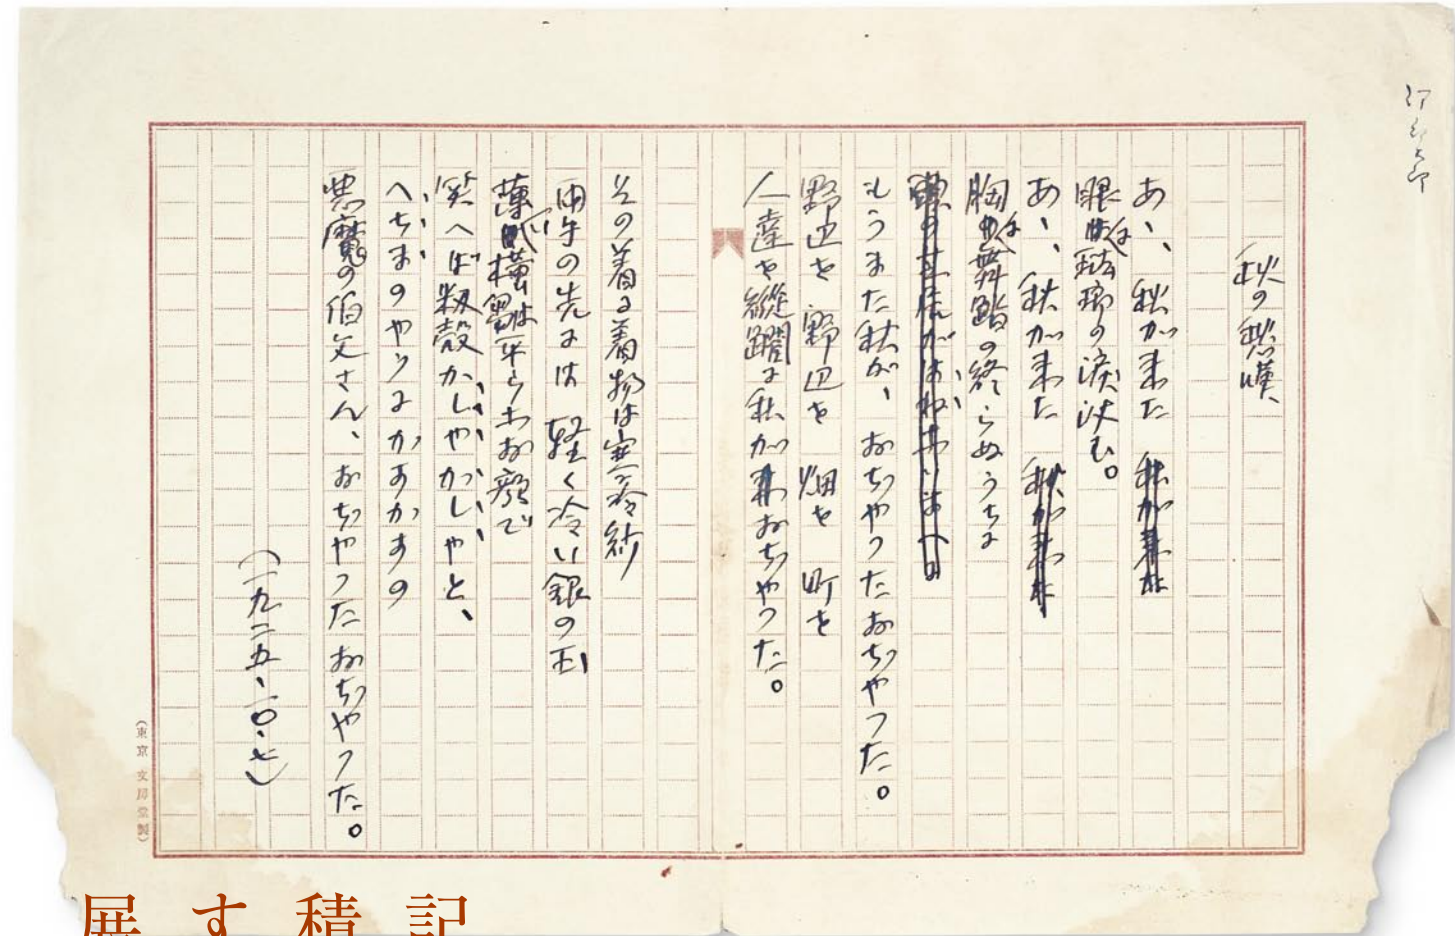 秋の愁嘆、
あゝ、秋が来た 秋が来た
眼は琺瑯の涙沁む。
あゝ、秋が来た 秋が来た
胸は舞踏の終らぬうちに
もうまた秋が、おぢやつたおぢやつた。
野辺を 野辺を 畑を 町を
人達を蹂躙に秋がおぢやつた。
その着る着物は寒冷紗
両手の先には 軽く冷い銀の玉
薄い横皺平らなお顔で
笑へば籾殻かしやかしやと、
へちまのやうにかすかすの
悪魔の伯父さん、おぢやつたおぢやつた。
(一九二五、一〇、七)
(東京 文房堂製)
記
積
す
展